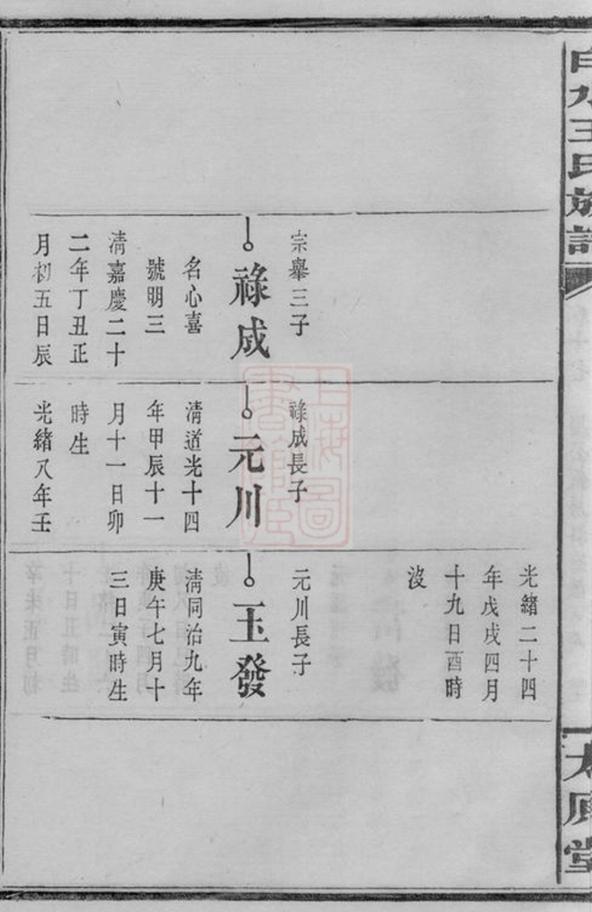 白水王氏族譜
太原堂
宗舉三子
祿成
名心喜
號明三
清嘉慶二十
二年丁丑正
月初五日辰
祿成長子
元川
清道光十四
年甲辰十一
月十一日卯
時生
光緒八年壬
光緒二十四
年戊戌四月
十九日酉時
沒
元川長子
玉發
清同治九年
庚午七月十
三日寅時生
上海圖
書館藏